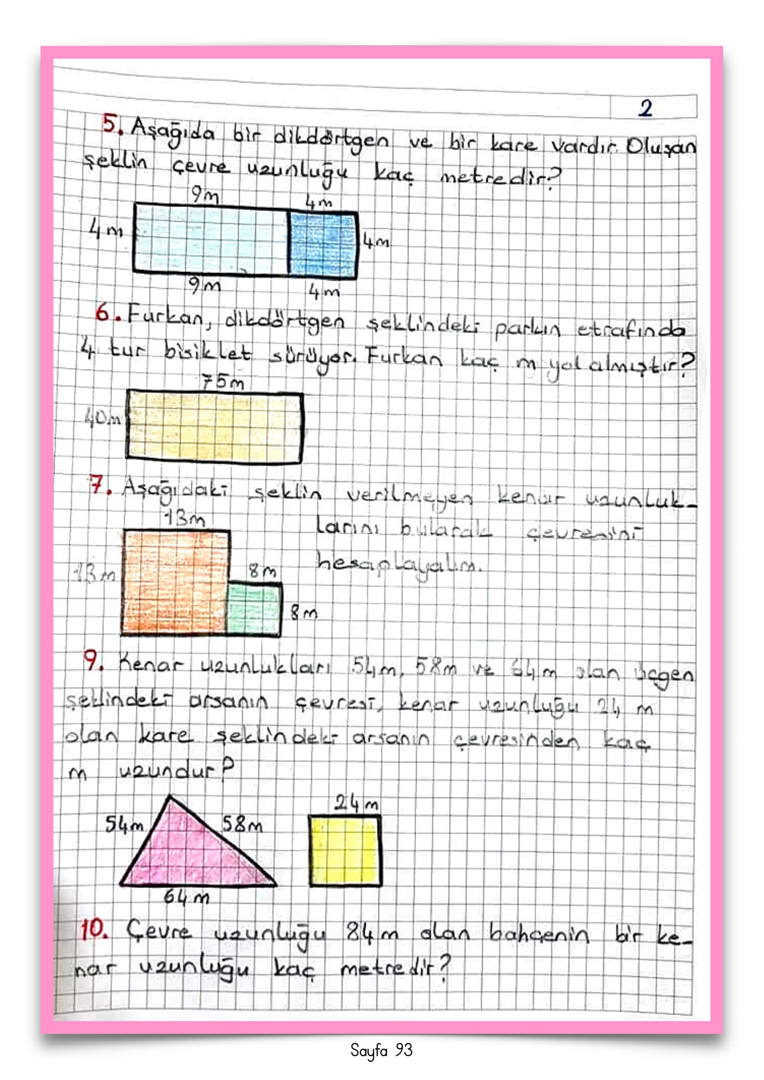 2
5. Aşağıda bir dikdörtgen ve bir kare vardır. Oluşan
şeklin çevre uzunluğu kaç metredir?
9m 4m
4m 4m
9m 4m
6. Furkan, dikdörtgen şeklindeki parkın etrafında
4 tur bisiklet sürüyor. Furkan kaç m yol almıştır?
75m
40m
7. Aşağıdaki şeklin verilmeyen kenar uzunluk-
13m larını bularak çevresini
13m 8m hesaplayalım.
8m
9. Kenar uzunlukları 54m, 58m ve 64m olan üçgen
şeklindeki arsanın çevresi, kenar uzunluğu 24 m
olan kare şeklindeki arsanın çevresinden kaç
m uzundur?
24m
54m 58m
64m
10. Çevre uzunluğu 84m olan bahçenin bir ke-
nar uzunluğu kaç metredir?
Sayfa 93